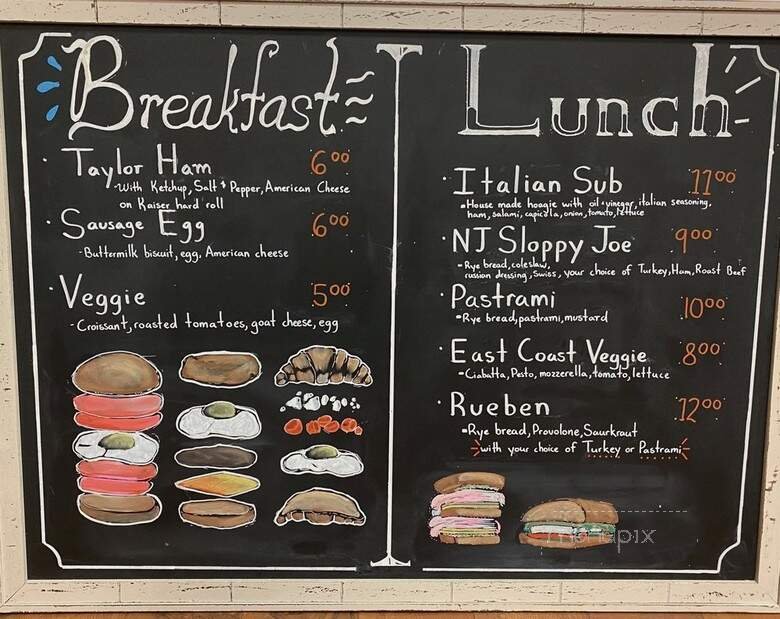 Breakfast
Taylor Ham 6.00
-With Ketchup, Salt + Pepper, American Cheese
on Kaiser hard roll
Sausage Egg 6.00
-Buttermilk biscuit, egg, American cheese
Veggie 5.00
-Croissant, roasted tomatoes, goat cheese, egg
Lunch
Italian Sub 11.00
-House made hoagie with oil + vinegar, italian seasoning,
ham, salami, capicolla, onion, tomato, lettuce
NJ Sloppy Joe 9.00
-Rye bread, coleslaw,
russian dressing, Swiss, your choice of Turkey, Ham, Roast Beef
Pastrami 10.00
-Rye bread, pastrami, mustard
East Coast Veggie 8.00
-Ciabatta, Pesto, mozzerella, tomato, lettuce
Rueben 12.00
-Rye bread, Provolone, Saurkraut
with your choice of Turkey or Pastrami
menupix